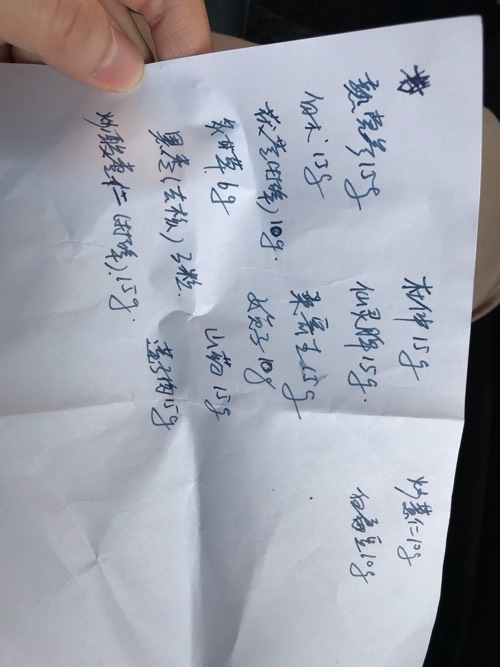 熟党参15g
白术15g
茯苓(打碎)10g.
炙甘草6g
黑枣(去核)3粒.
炒酸枣仁(打碎).15g.
杜仲15g
仙灵脾15g.
桑寄生15g
女贞子10g
山药15g
莲子肉15g
炒薏仁10g
白扁豆10g